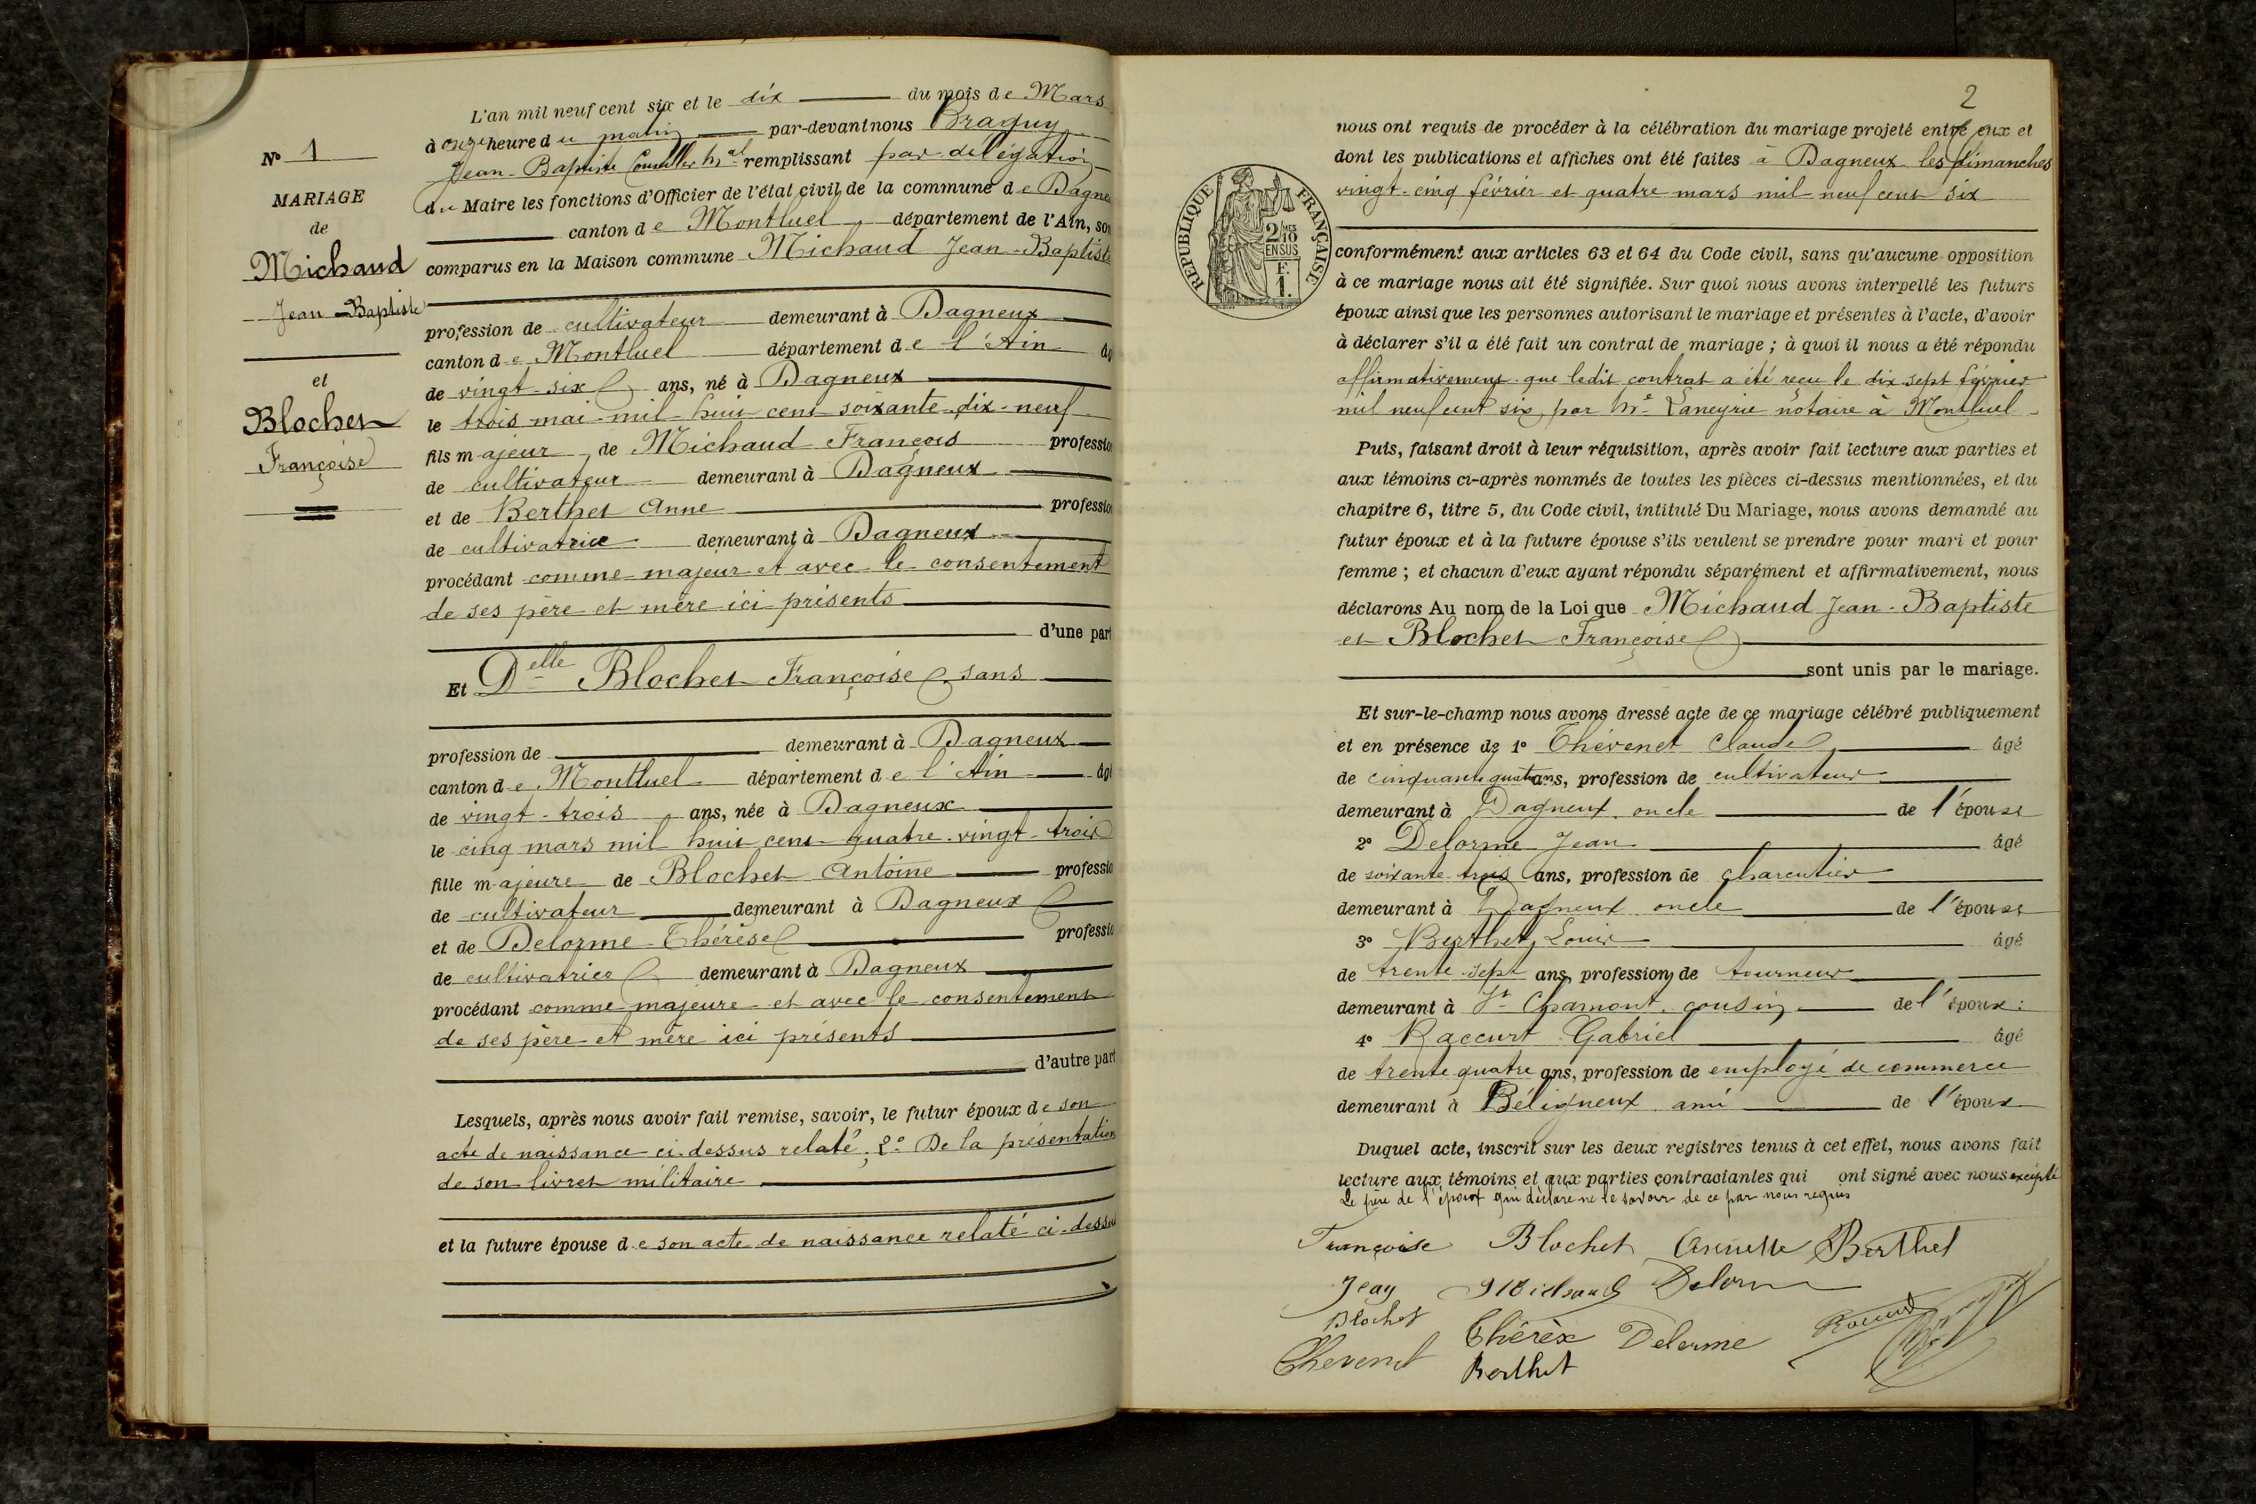 L'an mil neuf cent six et le dix du mois de Mars
à onze heure du matin par-devant nous Braguy
Jean-Baptiste Conseiller Mal remplissant par délégation
du Maire les fonctions d'Officier de l'état civil de la commune de Dagne
canton de Montluel département de l'Ain, son
comparus en la Maison commune Michaud Jean-Baptiste
profession de cultivateur demeurant à Dagneux
canton de Montluel département de l'Ain âg
de vingt-six ans, né à Dagneux
le trois mai mil huit cent soixante-dix-neuf
fils majeur de Michaud François profession
de cultivateur demeurant à Dagneux
et de Berthet Anne profession
de cultivatrice demeurant à Dagneux
procédant comme majeur et avec le consentement
de ses père et mère ici présents
d'une part
Et Delle Blochet Françoise sans
profession de demeurant à Dagneux
canton de Montluel département de l'Ain âgé
de vingt-trois ans, née à Dagneux
le cinq mars mil huit cent quatre-vingt-trois
fille majeure de Blochet Antoine professio
de cultivateur demeurant à Dagneux
et de Delorme Thérèse professio
de cultivatrice demeurant à Dagneux
procédant comme majeure et avec le consentement
de ses père et mère ici présents
d'autre part
Lesquels, après nous avoir fait remise, savoir, le futur époux de son
acte de naissance ci-dessus relaté, 2° De la présentation
de son livret militaire
et la future épouse de son acte de naissance relaté ci-dessus
N° 1
MARIAGE
de
Michaud
Jean-Baptiste
et
Blochet
Françoise
2
nous ont requis de procéder à la célébration du mariage projeté entre eux et
dont les publications et affiches ont été faites à Dagneux les dimanches
vingt-cinq février et quatre mars mil neuf cent six
conformément aux articles 63 et 64 du Code civil, sans qu'aucune opposition
à ce mariage nous ait été signifiée. Sur quoi nous avons interpellé les futurs
époux ainsi que les personnes autorisant le mariage et présentes à l'acte, d'avoir
à déclarer s'il a été fait un contrat de mariage ; à quoi il nous a été répondu
affirmativement que ledit contrat a été reçu le dix sept février
mil neuf cent six par Me Laneyrie notaire à Montluel
Puis, faisant droit à leur réquisition, après avoir fait lecture aux parties et
aux témoins ci-après nommés de toutes les pièces ci-dessus mentionnées, et du
chapitre 6, titre 5, du Code civil, intitulé Du Mariage, nous avons demandé au
futur époux et à la future épouse s'ils veulent se prendre pour mari et pour
femme ; et chacun d'eux ayant répondu séparément et affirmativement, nous
déclarons Au nom de la Loi que Michaud Jean-Baptiste
et Blochet Françoise
sont unis par le mariage.
Et sur-le-champ nous avons dressé acte de ce mariage célébré publiquement
et en présence de 1° Thévenet Claude âgé
de cinquante quatre ans, profession de cultivateur
demeurant à Dagneux oncle de l'épouse
2° Delorme Jean âgé
de soixante trois ans, profession de charcutier
demeurant à Dagneux oncle de l'épouse
3° Berthet Louis âgé
de trente-sept ans, profession de tourneur
demeurant à St Chamont, cousin de l'époux :
4° Raccurt Gabriel âgé
de trente quatre ans, profession de employé de commerce
demeurant à Béligneux ami de l'époux
Duquel acte, inscrit sur les deux registres tenus à cet effet, nous avons fait
lecture aux témoins et aux parties contractantes qui ont signé avec nous excepté
Le père de l'époux qui déclare ne le savoir de ce par nous requis
Françoise Blochet Annette Berthet
Jean Michaud Delorme
Blochet
Thevenet Thérèx Delorme
Berthet
REPUBLIQUE FRANÇAISE
2/10MES
EN SUS
F.
1.